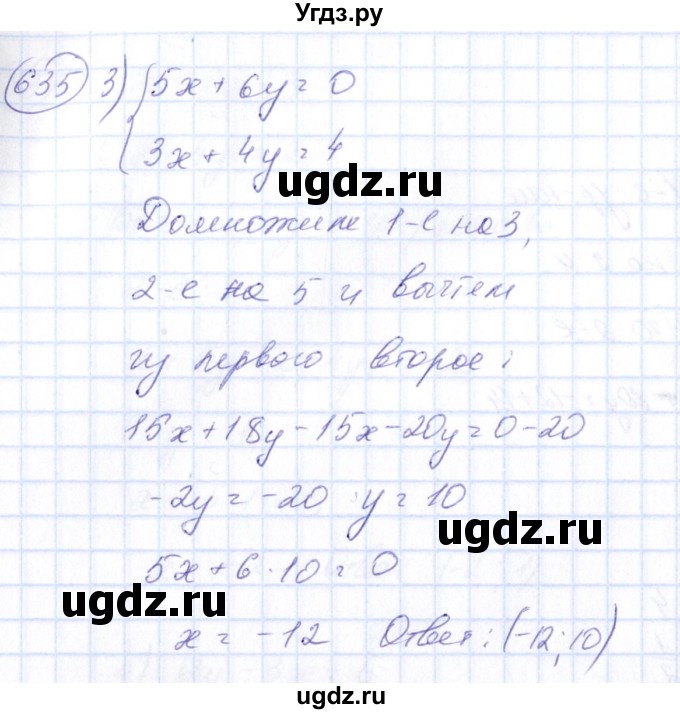 Угдз.ру
635 3) { 5x + 6y = 0
3x + 4y = 4
ugdz.ru
Домножим 1-е на 3,
2-е на 5 и вычтем
из первого второе:
15x+18y-15x-20y=0-20
-2y = -20 y = 10
ugdz.ru
5x+6·10=0
ugdz.ru
x = -12 Ответ: (-12; 10)
ugdz.ru